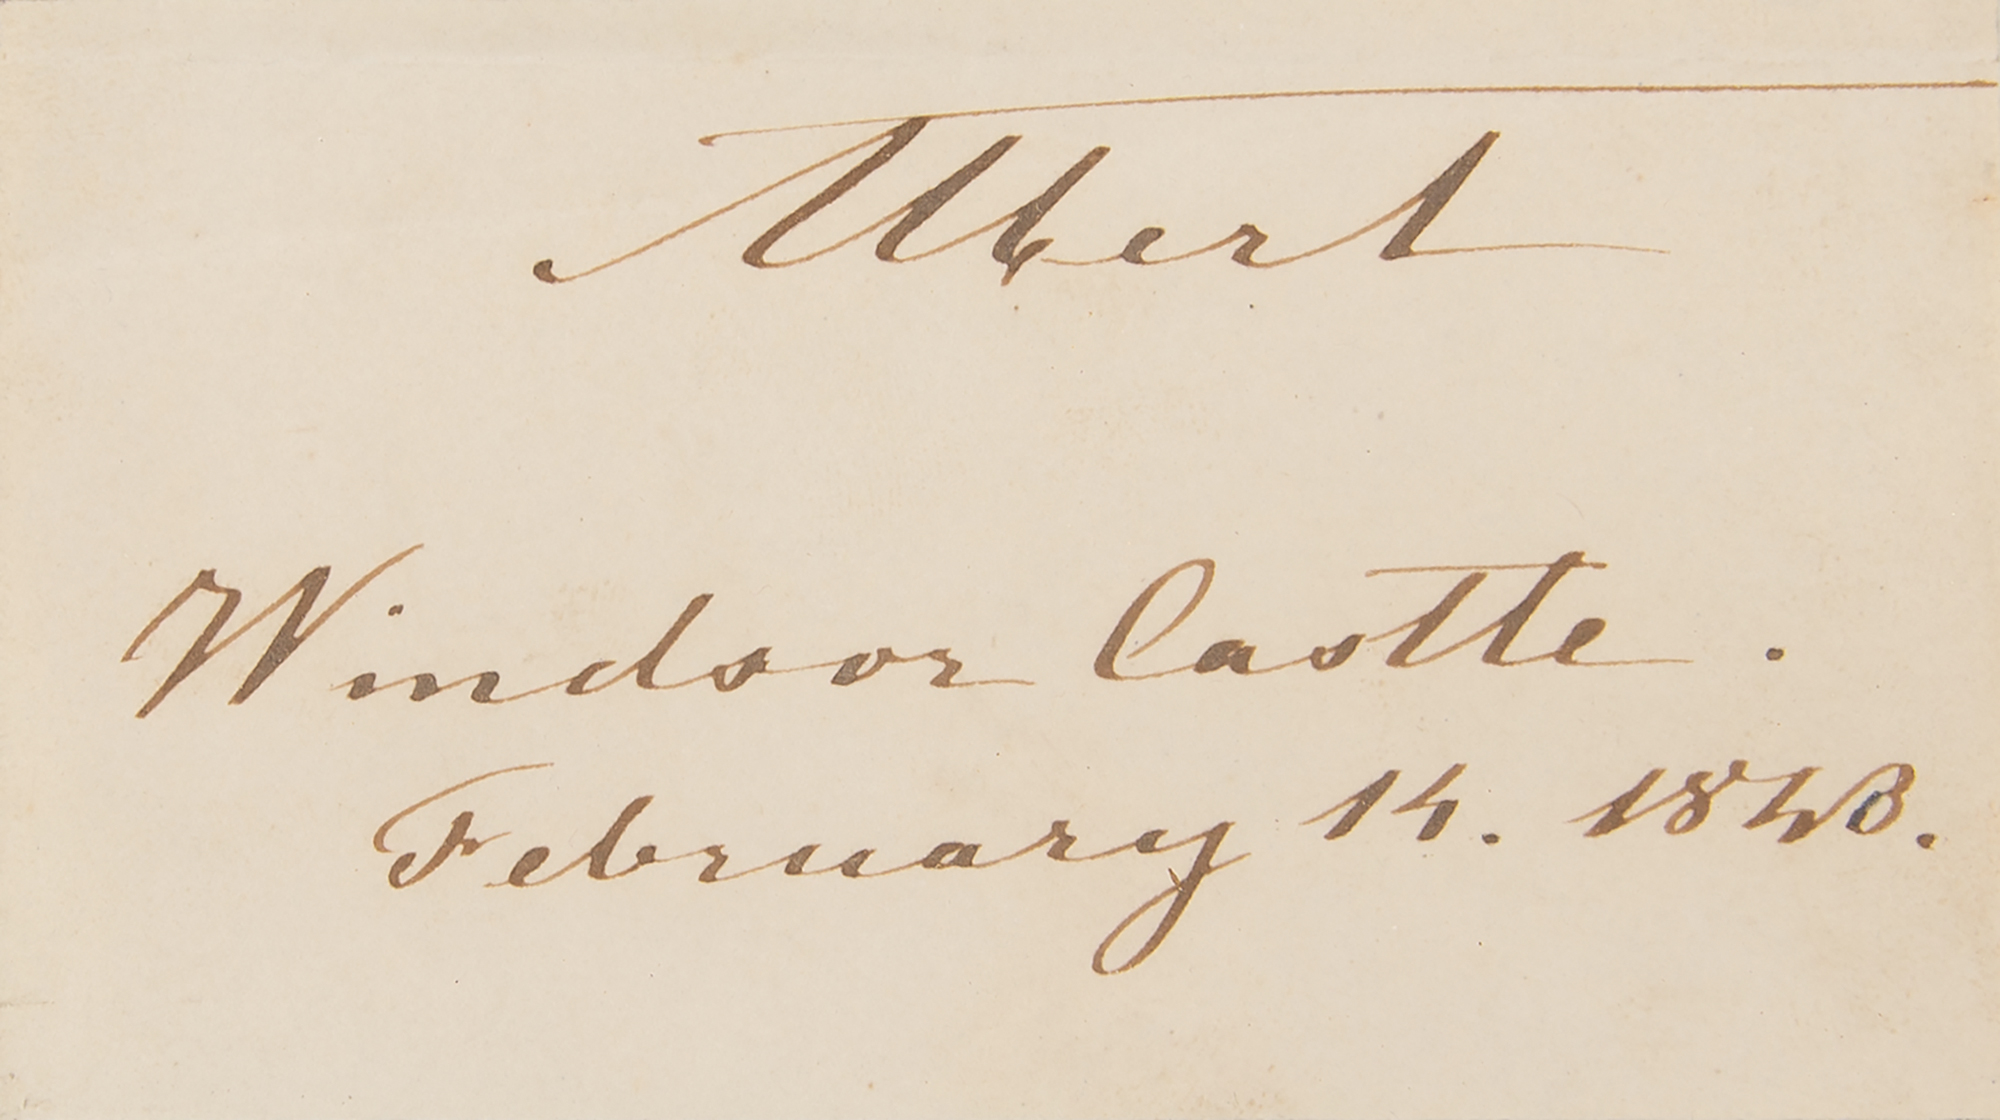 Albert
Windsor Castle.
February 14. 1843.